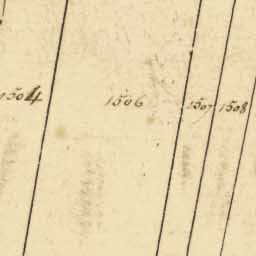 1504
1506
1507
1508